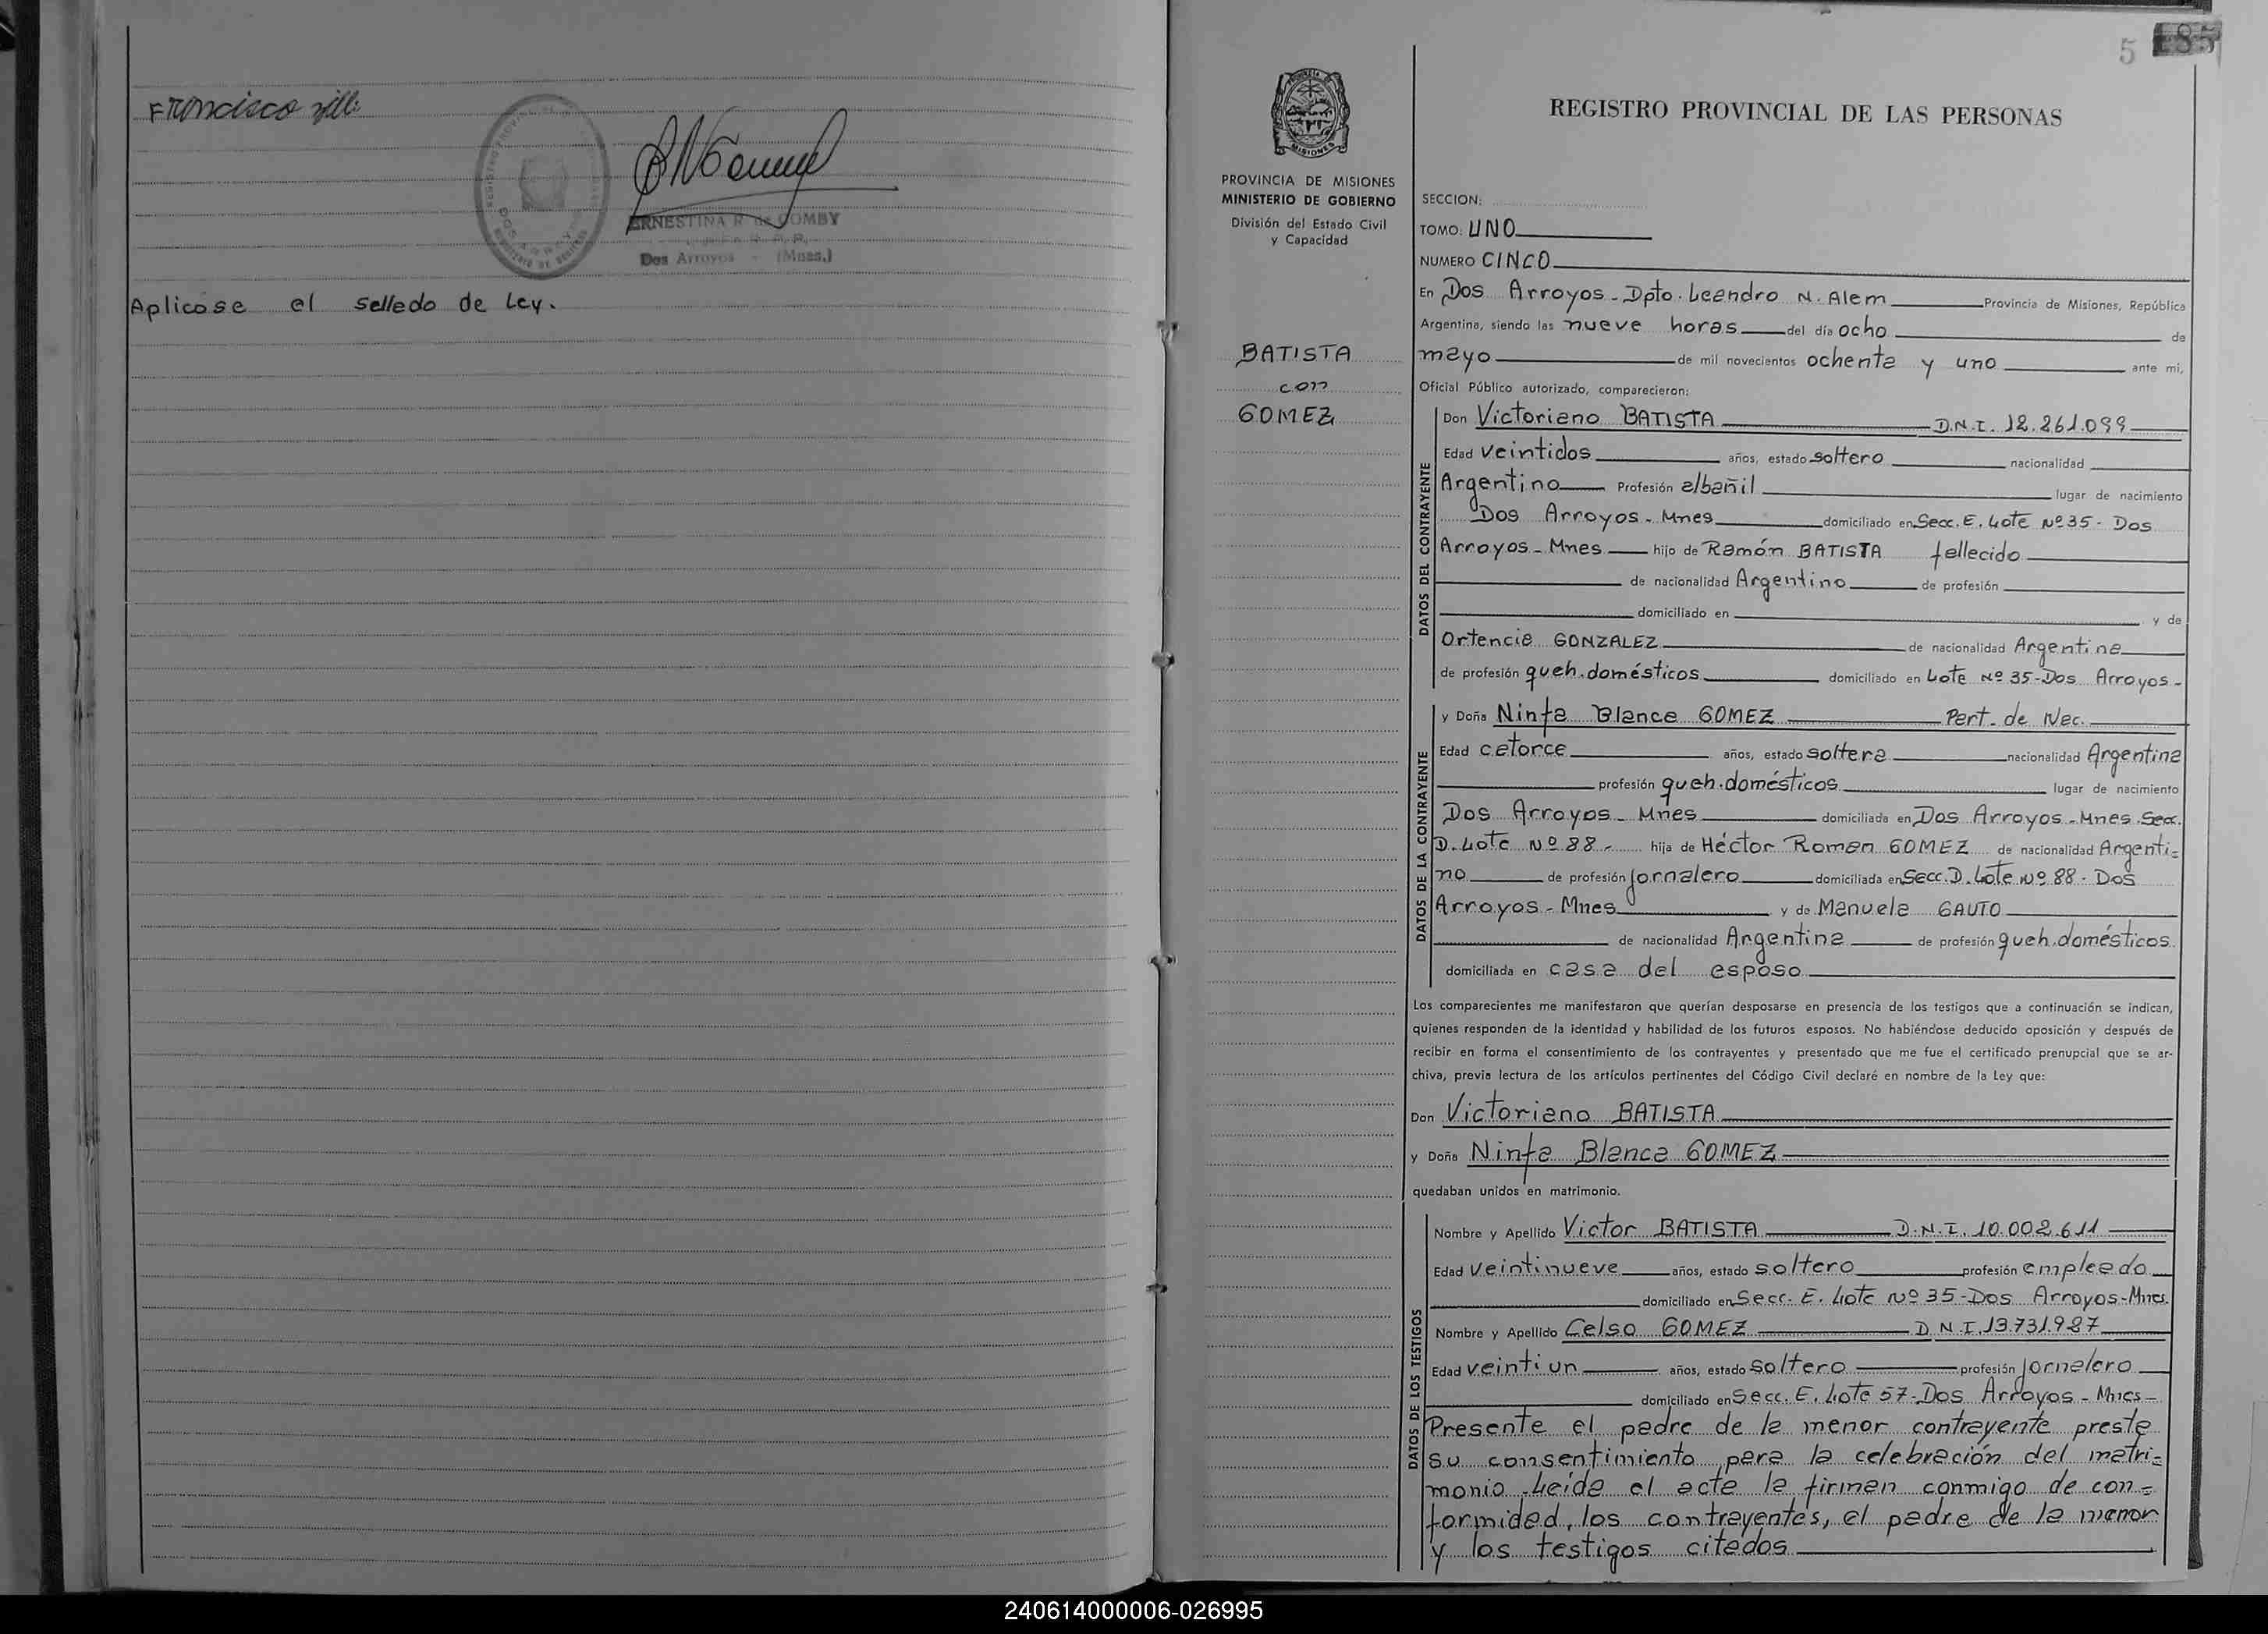 Francisco
ERNESTINA R. de GOMBY
Dos Arroyos - (Mnes.)
Aplicose el sellado de Ley.
5 185
PROVINCIA DE MISIONES
MINISTERIO DE GOBIERNO
División del Estado Civil
y Capacidad
BATISTA
con
GOMEZ
REGISTRO PROVINCIAL DE LAS PERSONAS
SECCION:
TOMO: UNO
NUMERO CINCO
En Dos Arroyos - Dpto. Leandro N. Alem Provincia de Misiones, República
Argentina, siendo las nueve horas del día ocho de
mayo de mil novecientos ochenta y uno ante mi,
Oficial Público autorizado, comparecieron:
DATOS DEL CONTRAYENTE
Don Victoriano BATISTA D.N.I. 12.261.099
Edad veintidos años, estado soltero nacionalidad
Argentino Profesión albañil lugar de nacimiento
Dos Arroyos - Mnes domiciliado en Secc. E. Lote Nº 35 - Dos
Arroyos - Mnes hijo de Ramón BATISTA fallecido
de nacionalidad Argentino de profesión
domiciliado en y de
Ortencia GONZALEZ de nacionalidad Argentina
de profesión queh. domésticos domiciliado en Lote Nº 35 - Dos Arroyos -
DATOS DE LA CONTRAYENTE
y Doña Ninfa Blanca GOMEZ Part. de Nac.
Edad catorce años, estado soltera nacionalidad Argentina
profesión queh. domésticos lugar de nacimiento
Dos Arroyos - Mnes domiciliada en Dos Arroyos - Mnes. Secc.
D. Lote Nº 88 - hija de Héctor Roman GOMEZ de nacionalidad Argenti=
no de profesión jornalero domiciliada en Secc. D. Lote Nº 88 - Dos
Arroyos - Mnes y de Manuela GAUTO
de nacionalidad Argentina de profesión queh. domésticos
domiciliada en casa del esposo
Los comparecientes me manifestaron que querían desposarse en presencia de los testigos que a continuación se indican,
quienes responden de la identidad y habilidad de los futuros esposos. No habiéndose deducido oposición y después de
recibir en forma el consentimiento de los contrayentes y presentado que me fue el certificado prenupcial que se ar-
chiva, previa lectura de los artículos pertinentes del Código Civil declaré en nombre de la Ley que:
Don Victoriano BATISTA
y Doña Ninfa Blanca GOMEZ
quedaban unidos en matrimonio.
DATOS DE LOS TESTIGOS
Nombre y Apellido Victor BATISTA D.N.I. 10.002.611
Edad veintinueve años, estado soltero profesión empleado
domiciliado en Secc. E. Lote Nº 35 - Dos Arroyos - Mnes.
Nombre y Apellido Celso GOMEZ D.N.I. 13.731.987
Edad veintiun años, estado soltero profesión jornalero
domiciliado en Secc. E. Lote 57 - Dos Arroyos - Mnes -
Presente el padre de la menor contrayente presta
su consentimiento para la celebración del matri=
monio. Leída el acta la firman conmigo de con=
formidad, los contrayentes, el padre de la menor
y los testigos citados
240614000006-026995